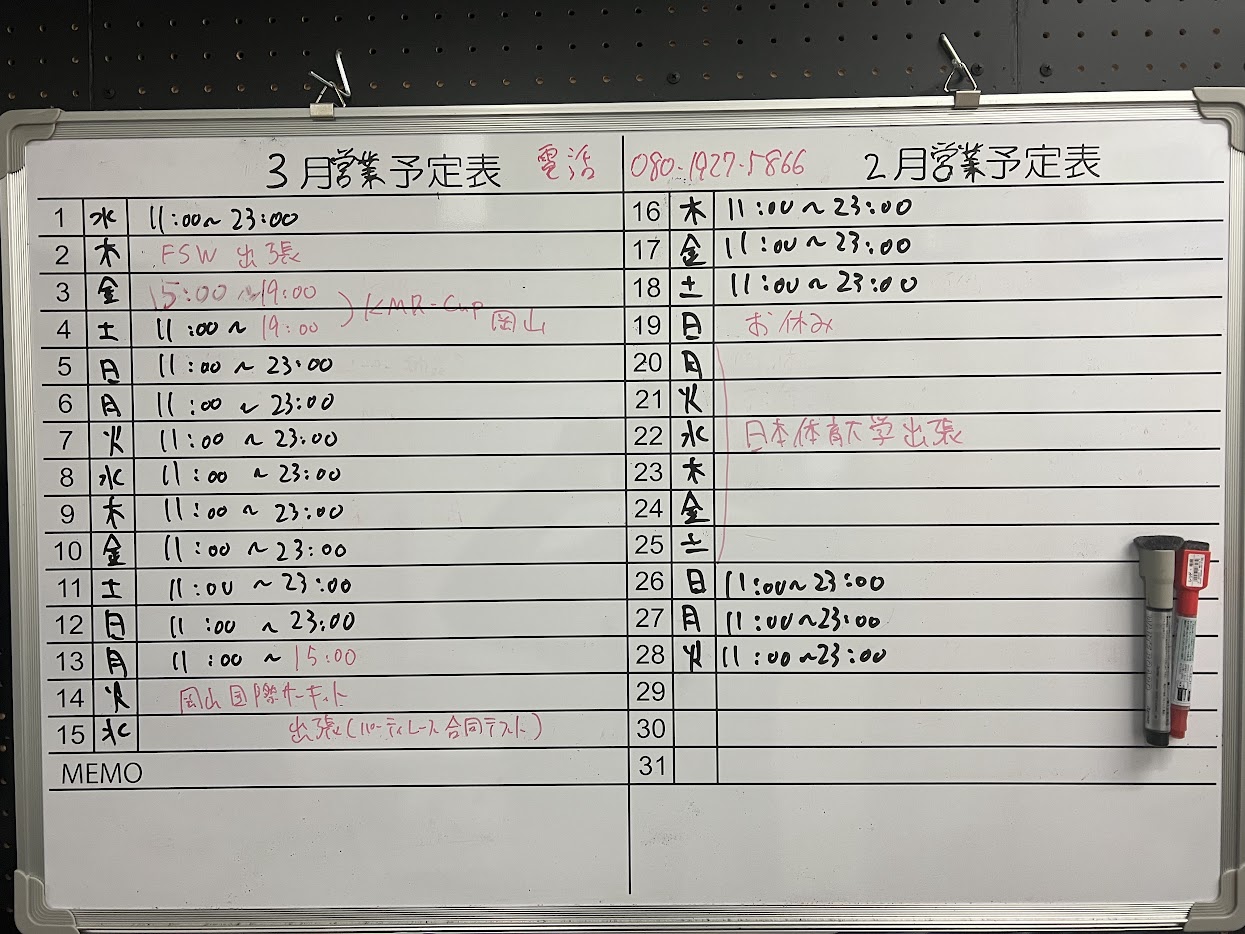 3月営業予定表
電話 080-1927-5866
1 水 11:00~23:00
2 木 FSW 出張
3 金 15:00~19:00
4 土 11:00~19:00
KMR-Cup 岡山
5 日 11:00~23:00
6 月 11:00~23:00
7 火 11:00~23:00
8 水 11:00~23:00
9 木 11:00~23:00
10 金 11:00~23:00
11 土 11:00~23:00
12 日 11:00~23:00
13 月 11:00~15:00
14 火 岡山国際サーキット
15 水 出張(パーティレース合同テスト)
MEMO
2月営業予定表
16 木 11:00~23:00
17 金 11:00~23:00
18 土 11:00~23:00
19 日 お休み
20 月
21 火
22 水 日本体育大学出張
23 木
24 金
25 土
26 日 11:00~23:00
27 月 11:00~23:00
28 火 11:00~23:00
29
30
31